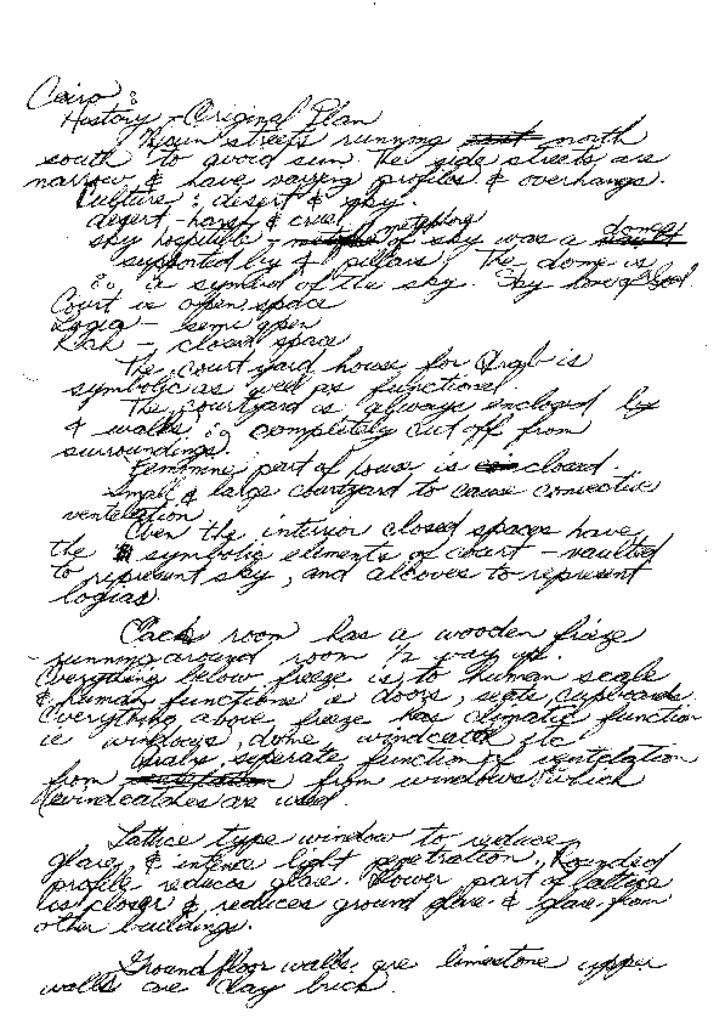 Cairo :
History - Original Plan
Main streets running north
south to avoid sun. The side streets are
narrow & have varying profiles & overhangs.
Culture : desert & sky.
desert - harsh & cruel
sky hospitable - metaphor of sky was a dome
supported by 4 pillars. The dome is
∴ a symbol of the sky. Sky home of God.
Court is open space
Logia - semi open
- closed space
The court yard house for Arab is
symbolic as well as functional
The courtyard is always enclosed by
4 walls ∴ completely cut off from
surroundings.
Feminine part of house is closed.
Small & large courtyard to cause convective
ventelation
Even the interior closed spaces have
the symbolic elements of court - vaulted
to represent sky, and alcoves to represent
logias.
Each room has a wooden frieze
running around room 1/2 way up.
Everything below freeze is to human scale
& human functions ie doors, seats, cupboards.
Everything above freeze has climatic function
ie windows, dome, windcatch etc
Arabs seperate function of ventelation
from from windows which
windcatches are used.
Lattice type window to reduce
glare, & intence light penetration. Rounded
profile reduces glare. Lower part of lattice
is closer & reduces ground glare & glare from
other buildings.
Ground floor walls are limestone upper
walls are clay brick.